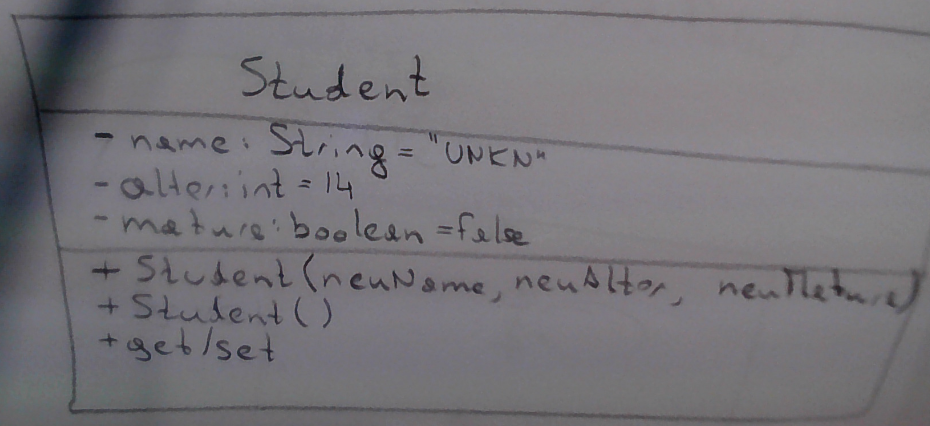 Student
- name: String = "UNKN"
- alter: int = 14
- mature: boolean = false
+ Student(neuName, neuAlter, neuMature)
+ Student()
+ get/set